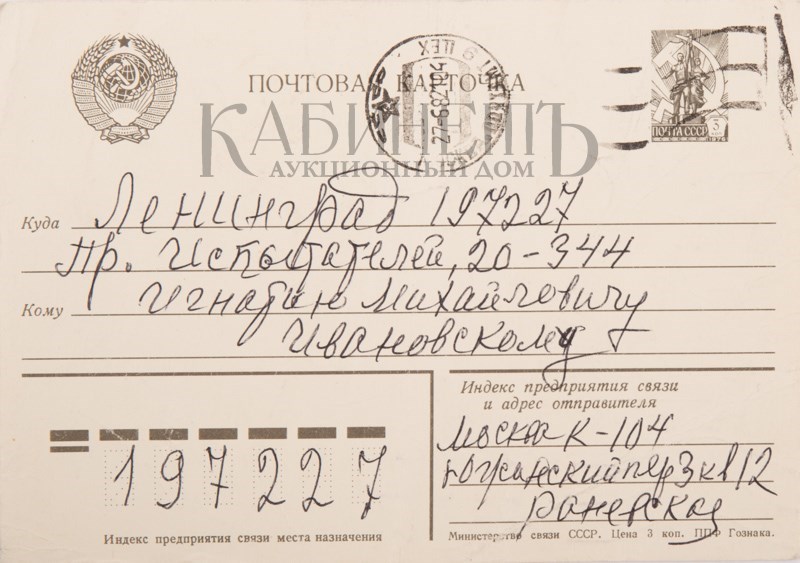 ПОЧТОВАЯ КАРТОЧКА
КАБИНЕТЪ
АУКЦИОННЫЙ ДОМ
27-6-82 12
ЦЕХ
ПОЧТА СССР
3
1976
Куда Ленинград 197227
Пр. Испытателей, 20-344
Кому Игнатию Михайловичу
Ивановскому
Индекс предприятия связи
и адрес отправителя
Москва К-104
Южинский пер 3 кв 12
Раневская
197227
Индекс предприятия связи места назначения
Министерство связи СССР. Цена 3 коп. ППФ Гознака.